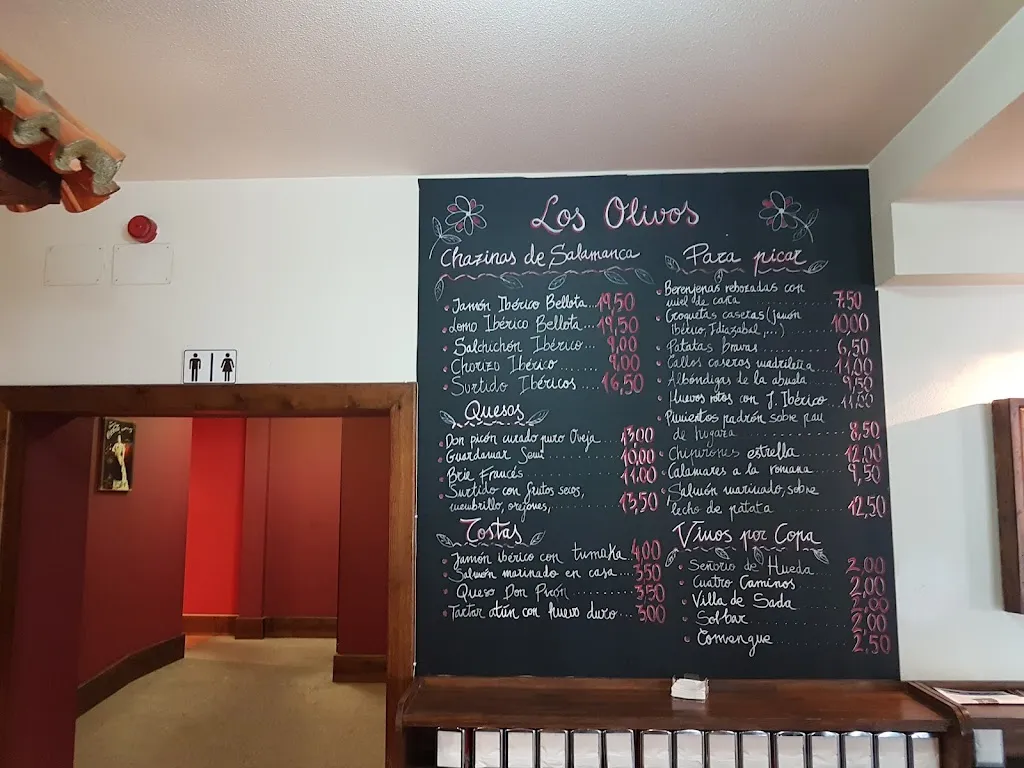 Los Olivos
Chazinas de Salamanca
Jamón Ibérico Bellota...19,50
Lomo Ibérico Bellota...19,50
Salchichón Ibérico...9,00
Chorizo Ibérico...9,00
Surtido Ibéricos...16,50
Quesos
Don picón curado puro Oveja...13,00
Guardamar Semi...10,00
Brie Francés...11,00
Surtido con frutos secos,
membrillo, orejones,...13,50
Tostas
Jamón ibérico con tumaka 4,00
Salmón marinado en casa...3,50
Queso Don Picón...3,50
Tartar atún con huevo duro...3,00
Para picar
Berenjenas rebozadas con
miel de caña...7,50
Croquetas caseras (jamón
Ibérico, Idiazabal,...)10,00
Patatas bravas...6,50
Callos caseros madrileña...11,00
Albóndigas de la abuela...9,50
Huevos rotos con J. Ibérico...11,00
Pimientos padrón sobre pan
de hogaza...8,50
Chipirones estrella...12,00
Calamares a la romana...9,50
Salmón marinado, sobre
lecho de patata...12,50
Vinos por Copa
Señorio de Hueda...2,00
Cuatro Caminos...2,00
Villa de Sada...2,00
Solbar...2,00
Comengue...2,50